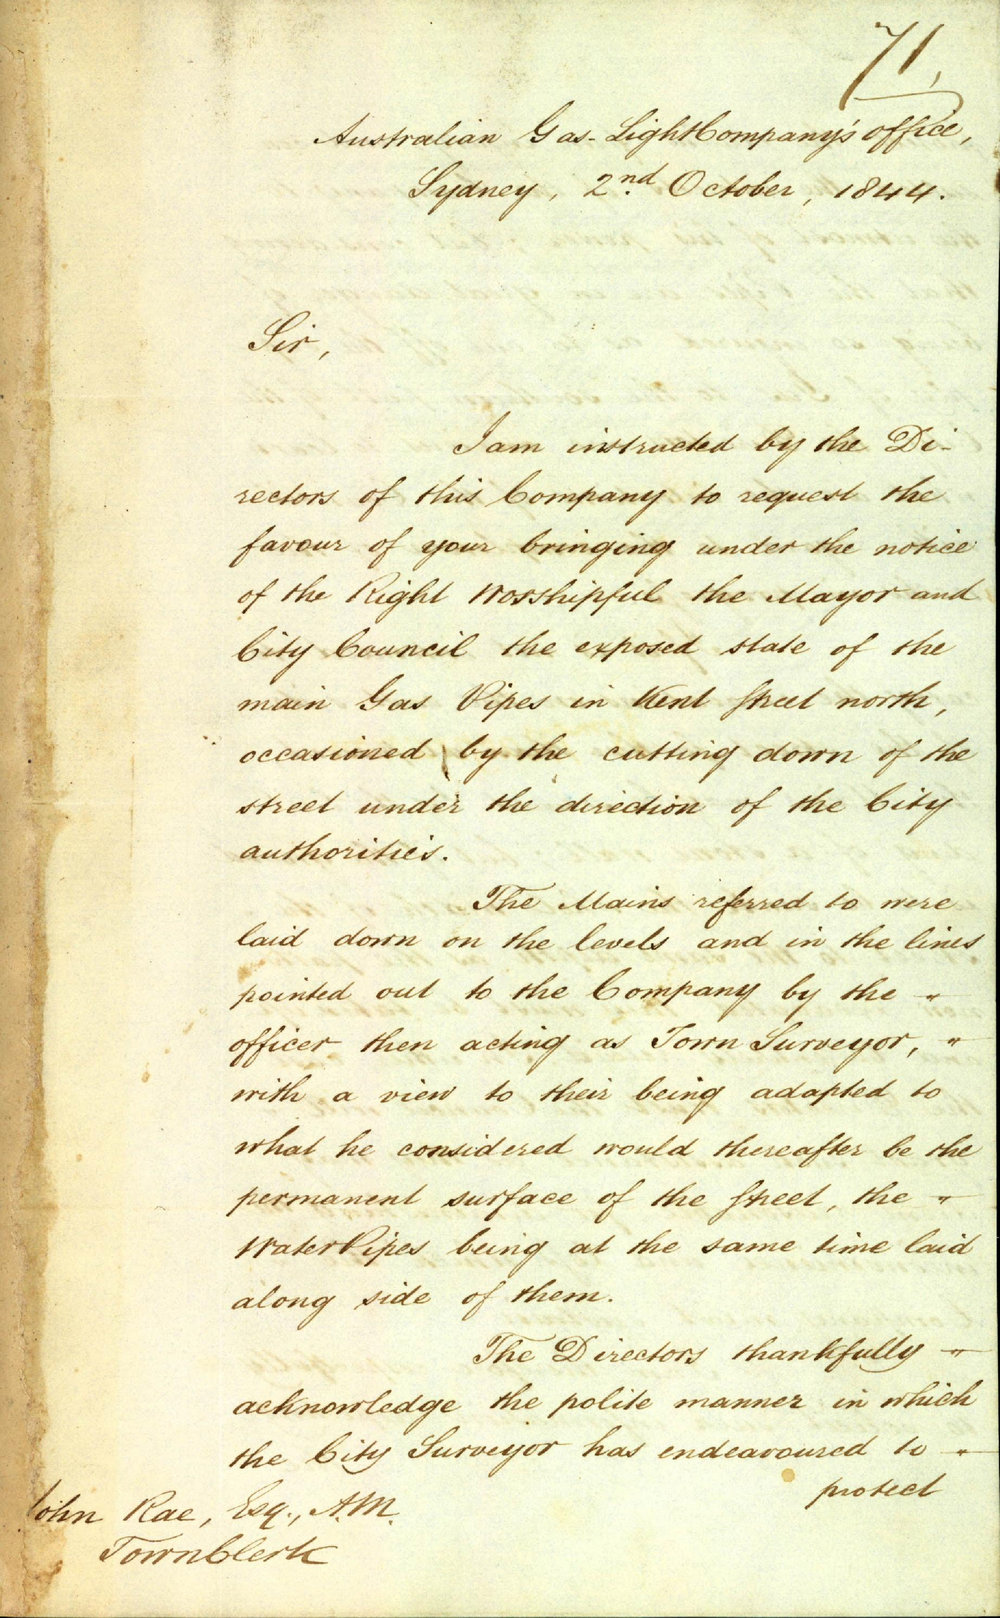 71,
Australian Gas-Light Company's office,
Sydney, 2nd. October, 1844.
Sir,
I am instructed by the Di-
rectors of this Company to request the
favour of your bringing under the notice
of the Right Worshipful the Mayor and
City Council the exposed state of the
main Gas Pipes in Kent Street north,
occasioned by the cutting down of the
street under the direction of the City
authorities.
The Mains referred to were
laid down on the levels and in the lines
pointed out to the Company by the "
officer then acting as Town Surveyor, "
with a view to their being adapted to
what he considered would thereafter be the
permanent surface of the Street, the "
Water Pipes being at the same time laid
along side of them.
The Directors thankfully "
acknowledge the polite manner in which
the City Surveyor has endeavoured to "
protect
John Rae, Esq., A.M.
Town Clerk